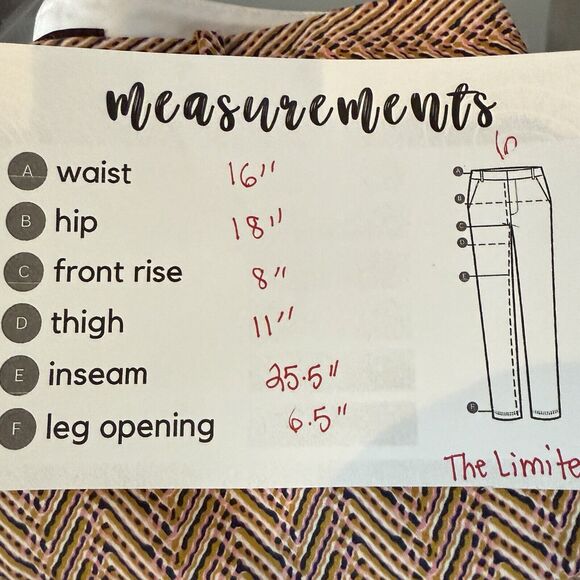 measurements
6
A waist 16"
B hip 18"
C front rise 8"
D thigh 11"
E inseam 25.5"
F leg opening 6.5"
A
B
C
D
E
F
The Limite